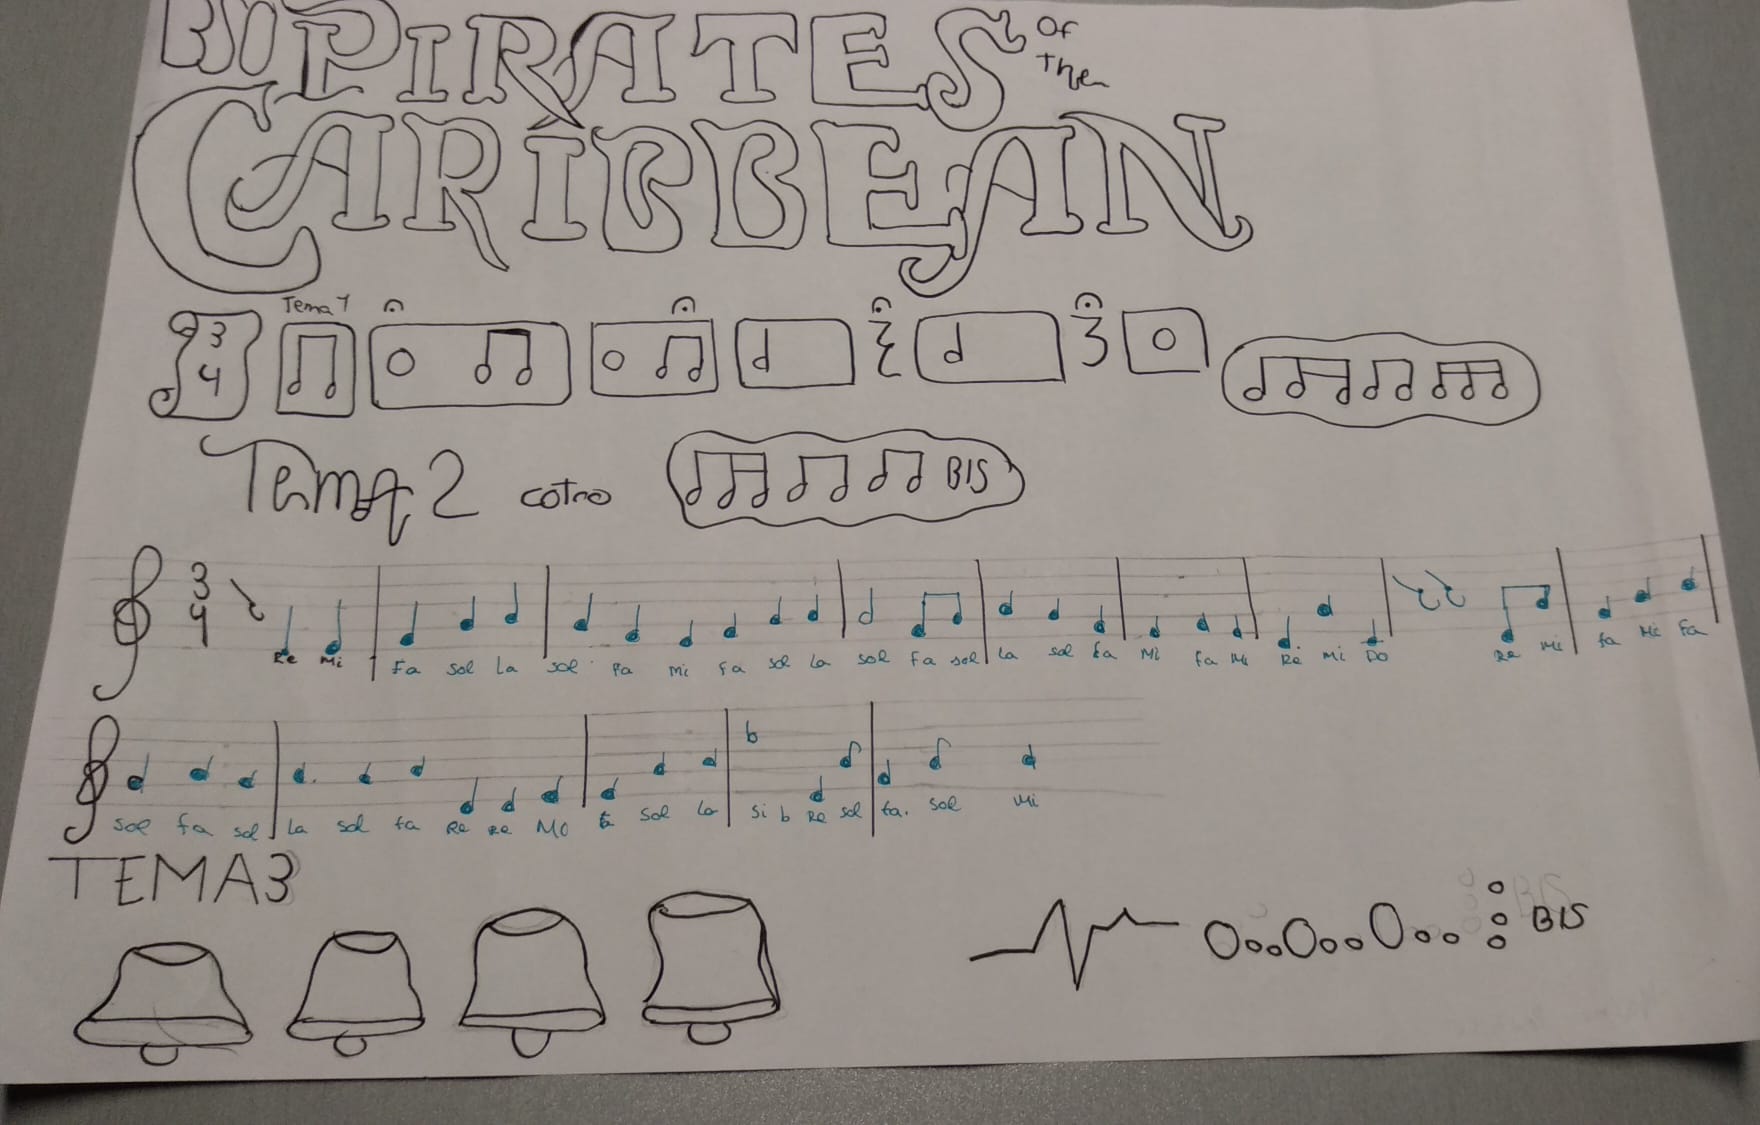 PIRATES of the
CARIBBEAN
Tema 1
3
4
Tema 2 cotno BIS
3
4
Re Mi Fa sol La sol Fa Mi Fa sol La sol Fa sol La sol Fa Mi Fa Mi Re Mi Do Re Mi Fa Mi Fa
Sol fa sol La sol fa Re Re Mo fa Sol La Si b Re sol fa. sol Mi
TEMA3
BIS